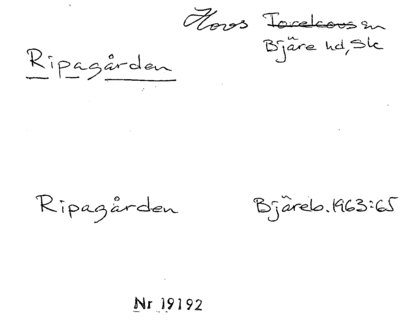 Hovs ~~Torekovs~~ sn
Bjäre hd, Sk
Ripagården
Ripagården Bjäreb. 1963:65
Nr 19192